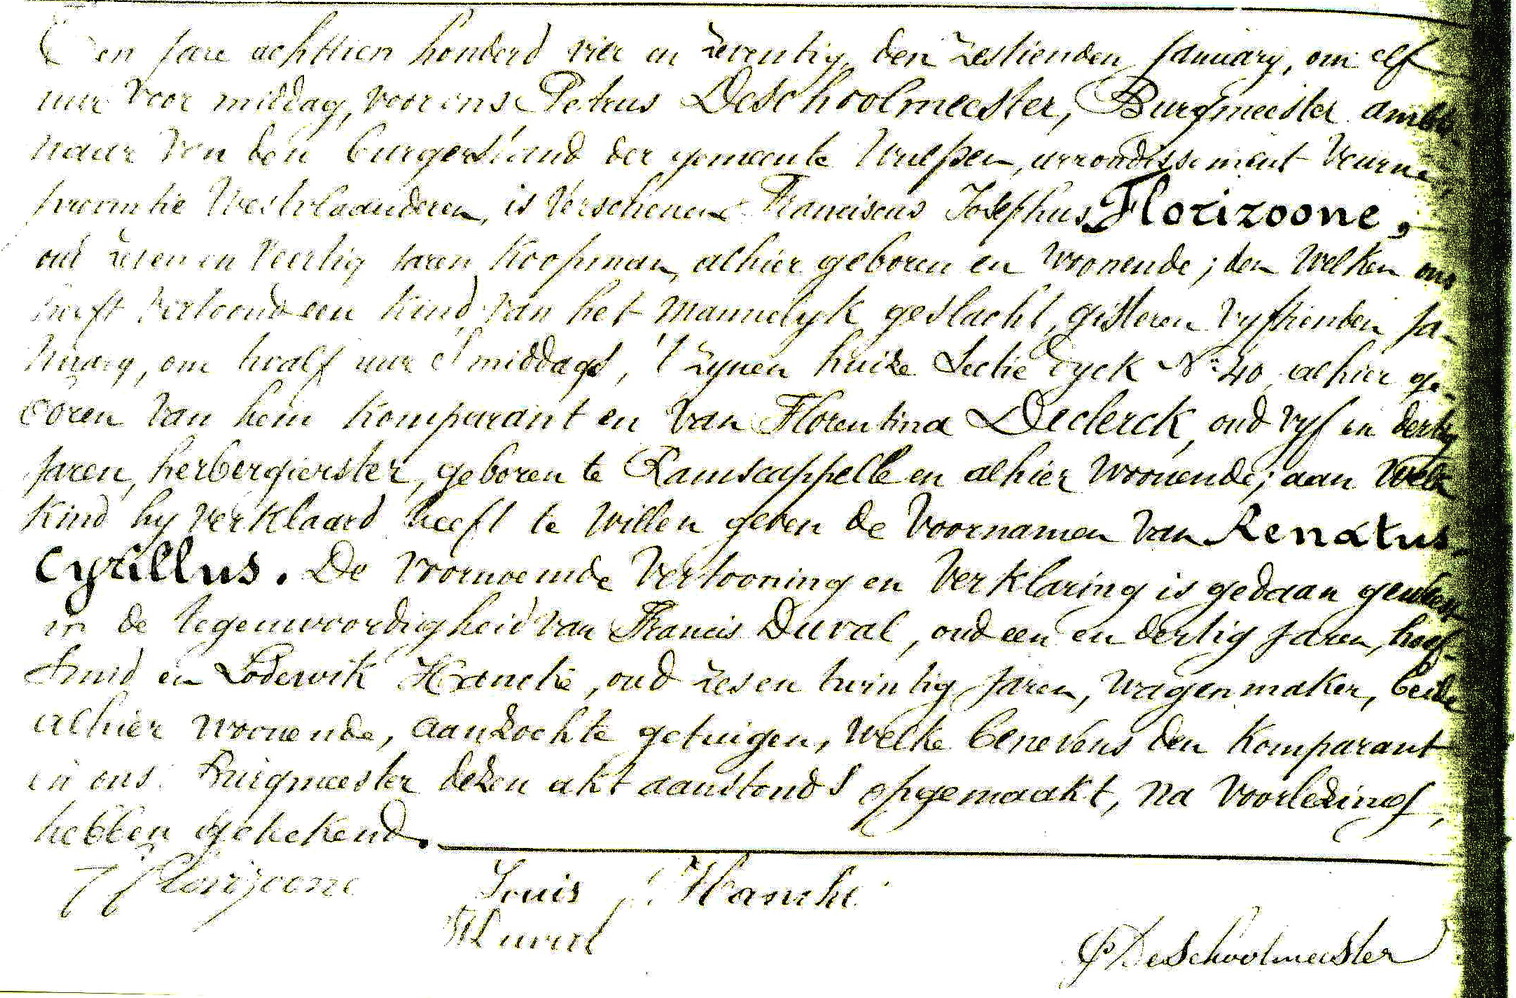 Den jare achttien honderd vier en zeventig, den zestienden January, om elf
uur voor middag, voor ons Petrus Deschoolmeester, Burgmeester ambte-
naar van den burgerstand der gemeente Wulpen, arrondissement Veurne,
provintie Westvlaanderen, is verschenen Franciscus Josephus Florizoone,
oud zeven en veertig jaren, koopman, alhier geboren en woonende; den welken ons
heeft vertoond een kind van het mannelyk geslacht, gisteren vyftienden Ja-
nuary, om half uur 's middags, 't zynen huize Sectie Dyck N° 40, alhier ge-
boren van hem komparant en van Florentina Declerck, oud vyf en dertig
jaren, herbergierster, geboren te Ramscappelle en alhier woonende; aan welk
kind hy verklaard heeft te willen geven de voornamen van Renatus-
Cyrillus. De voornoemde vertooning en verklaring is gedaan geweest
in de tegenwoordigheid van Francis Duval, oud een en dertig jaren, hoef-
smid en Lodewik Hancke, oud zes en twintig jaren, wagenmaker, beide
alhier woonende, aanzochte getuigen, welke benevens den komparant
en ons Burgmeester dezen akt aanstonds opgemaakt, na voorlezing,
hebben geteekend.
Florizoone Louis Hancke
Duval
P Deschoolmeester